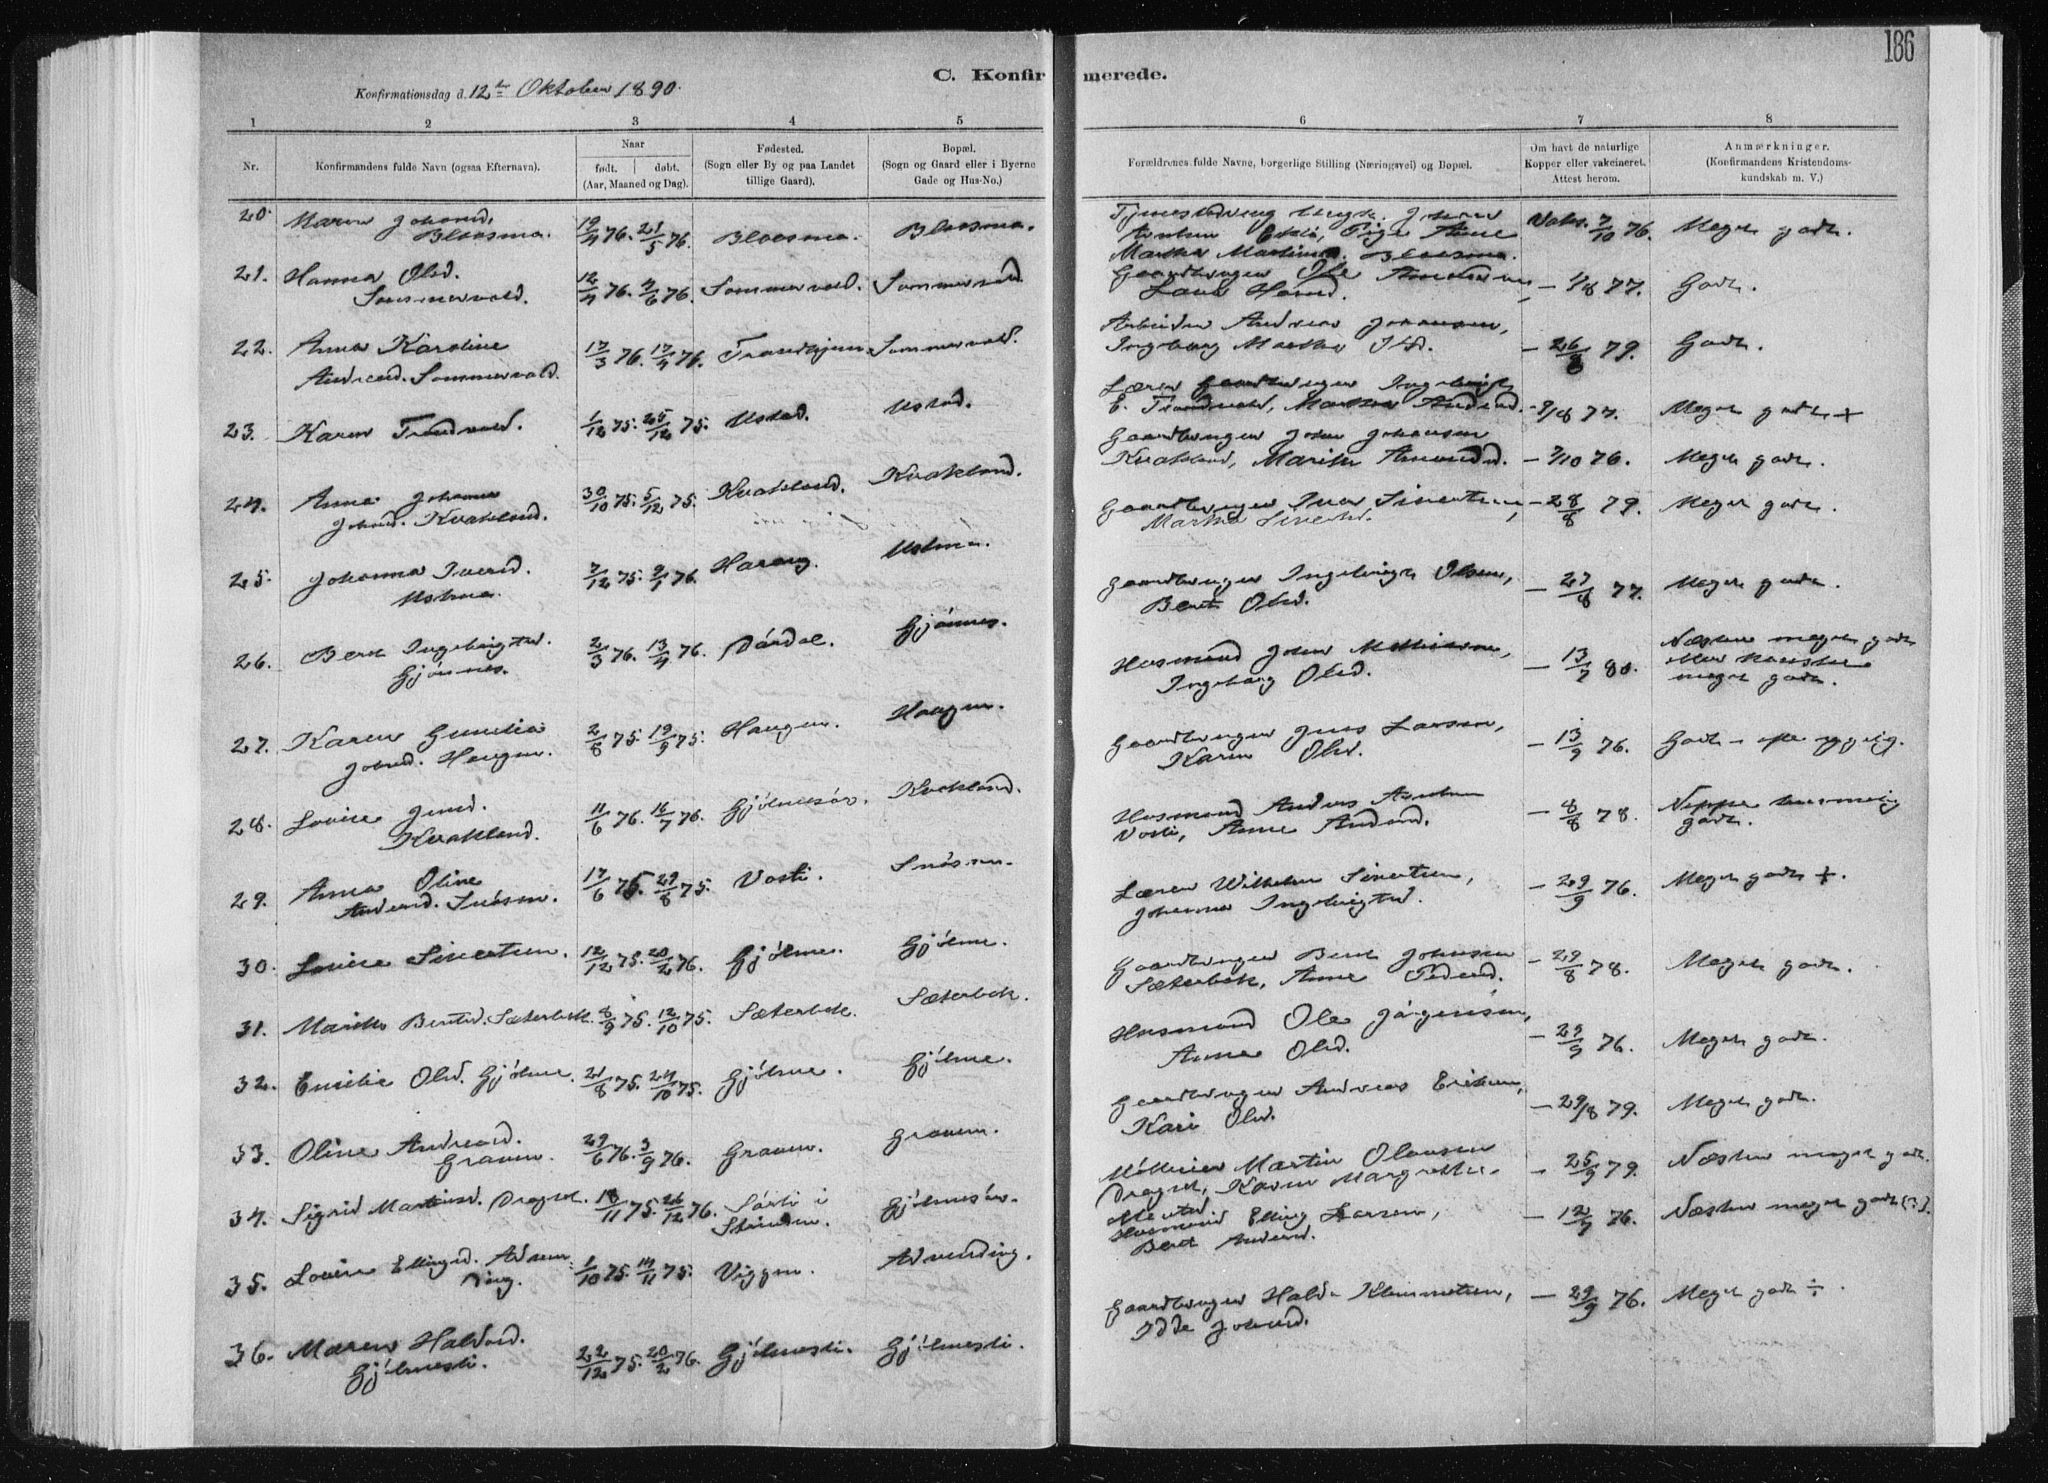 186
C. Konfirmerede.
Konfirmationsdag d. 12te Oktober 1890.
1 2 3 4 5 6 7 8
Nr.
Konfirmandens fulde Navn (ogsaa Efternavn).
Naar
født. døbt.
(Aar, Maaned og Dag).
Fødested.
(Sogn eller By og paa Landet
tillige Gaard).
Bopæl.
(Sogn og Gaard eller i Byerne
Gade og Hus-No.)
Forældrenes fulde Navne, borgerlige Stilling (Næringsvei) og Bopæl.
Om havt de naturlige
Kopper eller vakcineret.
Attest herom.
Anmærkninger.
(Konfirmandens Kristendoms-
kundskab m. V.)
20. Maren Johnsd.
Blaasmo. 19/4 76. 21/5 76. Blaasmo. Blaasmo.
Martha Blaasmo.
Vaks. 7/10 76. Meget godt.
21. Hanna Olsd.
Sommervold. 12/4 76. 4/6 76. Sommervold. Sommervold
Gaardbruger Ole
- 1/8 77. Godt.
22. Anna Karoline
Andreasd. Sommervold. 17/3 76. 17/4 76. Trondhjem. Sommervold.
Arbeider Andreas Johansen,
Ingeborg Martha Olsd. - 26/8 79. Godt.
23. Karen Trondvold. 1/12 75. 25/12 75. Ustad. Ustad.
Lærer Gaardbruger Ingebrigt
E. Trondvold, Martha Andersd. - 9/8 77. Meget godt +
24. Anna Johanna
Johnsd. Kvakland. 30/10 75. 5/12 75. Kvakland. Kvakland.
Gaardbruger John Johansen
Kvakland, Marith Amundsd. - 7/10 76. Meget godt.
25. Johanna Iversd.
Ustmo. 7/12 75. 9/1 76. Harang. Ustmo.
Gaardbruger Iver Sivertsen,
Martha Sivertsd. - 28/8 79. Meget godt.
26. Beret Ingebrigtsd.
Gjønnes. 2/3 76. 13/4 76. Dårdal. Gjønnes.
Gaardbruger Ingebrigt Olsen,
Beret Olsd. - 27/8 77. Meget godt.
27. Karen Gunelia
Johnsd. Haugen. 2/8 75. 19/9 75. Haugen. Haugen.
Husmand John
Ingeborg Olsd. - 13/7 80. Næsten meget godt
meget godt.
28. Lovise Jensd.
Kvakland. 11/6 76. 16/7 76. Gjølmesør. Kvakland.
Gaardbruger Jens Larsen,
Karen Olsd. - 13/9 76. Godt
29. Anna Oline
Andersd. Snøsmo. 17/6 75. 29/8 75. Vosti. Snøsmo.
Husmand Anders
Vosti, Anne Andersd. - 8/8 78. Neppe
godt.
30. Lovise Sivertsen. 12/12 75. 20/2 76. Gjølme. Gjølme.
Lærer Wilhelm Sivertsen,
Johanna Ingebrigtsd. - 29/9 76. Meget godt +.
31. Marith Bentsd. Sæterbek. 8/9 75. 12/10 75. Sæterbek. Sæterbek.
Gaardbruger Bent Johnsen
Sæterbek, Anne Pedersd. - 29/8 78. Meget godt.
32. Emilie Olsd. Gjølme. 21/8 75. 24/10 75. Gjølme. Gjølme.
Husmand Ole Jørgensen,
Anne Olsd. - 29/9 76. Meget godt.
33. Oline Andreasd.
Graven. 29/6 76. 3/9 76. Graven. Graven.
Gaardbruger Andreas Eriksen,
Kari Olsd. - 29/8 79. Meget godt.
34. Sigrid Martinsd. Dragset. 18/11 75. 26/12 76. Sørli i
Strinden. Gjølmesør.
Møller Martin Olausen
Dragset, Karen Margrethe
- 25/9 79. Næsten meget godt.
35. Lovise Ellingsd. Adven
ding. 1/10 75. 14/11 75. Viggen. Advending.
Husmand Elling Larsen,
Beret Andersd. - 12/7 76. Næsten meget godt (3).
36. Maren Haldosd.
Gjølmesli. 22/12 75. 20/2 76. Gjølmesli. Gjølmesli.
Gaardbruger Haldo Klemmetsen,
Idde Johnsd. - 29/9 76. Meget godt ÷.